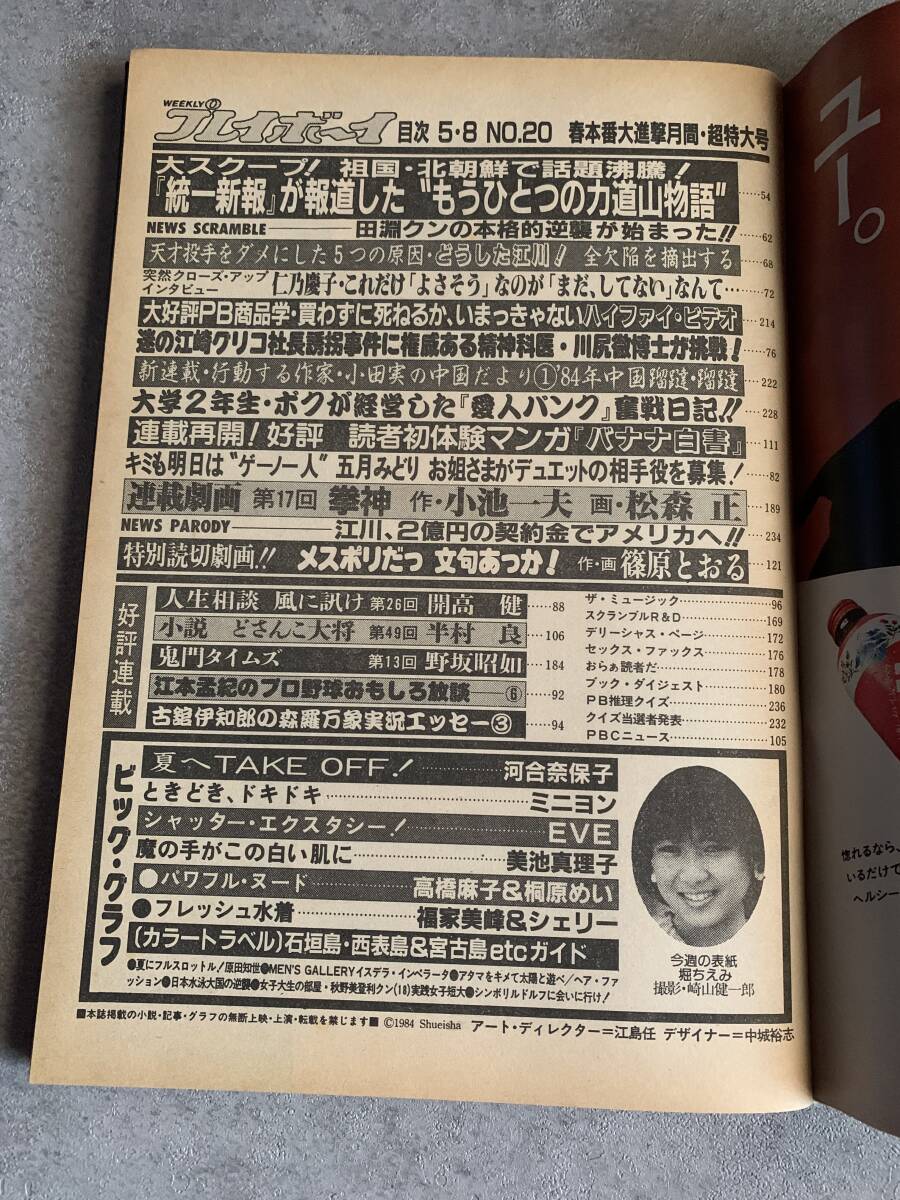 WEEKLY プレイボーイ 目次 5・8 NO.20 春本番大進撃月間・超特大号
大スクープ! 祖国・北朝鮮で話題沸騰!
『統一新報』が報道した“もうひとつの力道山物語”……54
NEWS SCRAMBLE 田淵クンの本格的逆襲が始まった!!……62
天才投手をダメにした5つの原因・どうした江川! 全欠陥を摘出する……68
突然クローズ・アップインタビュー 仁乃慶子・これだけ「よさそう」なのが「まだ、してない」なんて………72
大好評PB商品学・買わずに死ねるか、いまっきゃないハイファイ・ビデオ……214
迷の江崎グリコ社長誘拐事件に権威ある精神科医・川尻徹博士が挑戦!……76
新連載・行動する作家・小田実の中国だより①'84年中国蹓躂・蹓躂……222
大学2年生・ボクが経営した『愛人バンク』奮戦日記!!……228
連載再開! 好評 読者初体験マンガ『バナナ白書』……111
キミも明日は“ゲーノー人” 五月みどり お姐さまがデュエットの相手役を募集!……82
連載劇画 第17回 拳神 作・小池一夫 画・松森 正……189
NEWS PARODY 江川、2億円の契約金でアメリカへ!!……234
特別読切劇画!! メスポリだっ 文句あっか! 作・画 篠原とおる……121
好評連載
人生相談 風に訊け 第26回 開高 健……88
小説 どさんこ大将 第49回 半村 良……106
鬼門タイムズ 第13回 野坂昭如……184
江本孟紀のプロ野球おもしろ放談―⑥……92
古舘伊知郎の森羅万象実況エッセー③……94
ザ・ミュージック……96
スクランブルR&D……169
デリーシャス・ページ……172
セックス・ファックス……176
おらぁ読者だ……178
ブック・ダイジェスト……180
PB推理クイズ……236
クイズ当選者発表……232
PBCニュース……105
ビッグ・グラフ
夏へTAKE OFF!……河合奈保子
ときどき、ドキドキ……ミニヨン
シャッター・エクスタシー!……EVE
魔の手がこの白い肌に……美池真理子
●パワフル・ヌード……高橋麻子&桐原めい
●フレッシュ水着……福家美峰&シェリー
(カラートラベル)石垣島・西表島&宮古島etcガイド
●夏にフルスロットル!原田知世●MEN'S GALLERYイスデラ・インペラータ●アタマをキメて太陽と遊べ/ヘア・ファ
ッション●日本水泳大国の逆襲●女子大生の部屋・秋野美登利クン(18)実践女子短大●シンボリルドルフに会いに行け!
今週の表紙
堀ちえみ
撮影・崎山健一郎
■本誌掲載の小説・記事・グラフの無断上映・上演・転載を禁じます■ ©1984 Shueisha アート・ディレクター=江島任 デザイナー=中城裕志
ユー。
惚れるなら、
いるだけで
ヘルシー